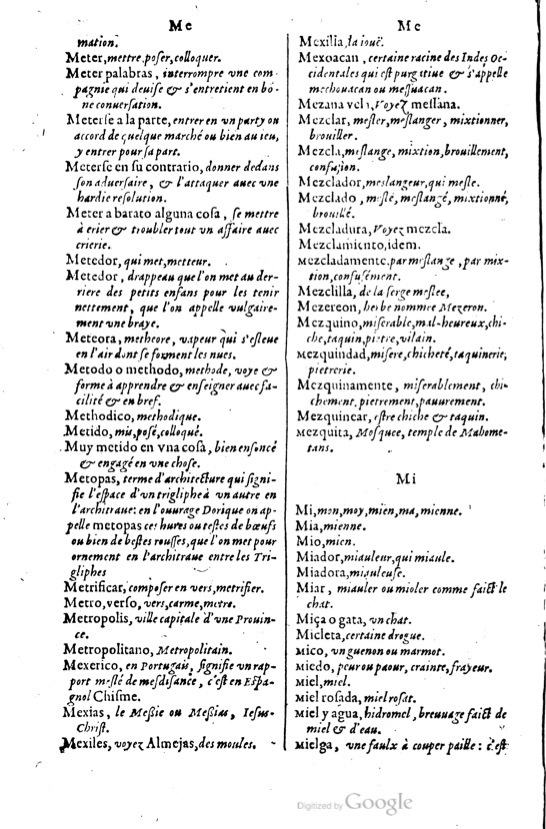 Me
mation.
Meter, mettre, poser, colloquer.
Meter palabras, interrompre vne com-
pagnie qui deuise & s'entretient en bō-
ne conuersation.
Meterse a la parte, entrer en vn party ou
accord de quelque marché ou bien au ieu,
y entrer pour sa part.
Meterse en su contrario, donner dedans
son aduersaire, & l'attaquer auec vne
hardie resolution.
Meter a barato alguna cosa, se mettre
à crier & troubler tout vn affaire auec
crierie.
Metedor, qui met, metteur.
Metedor, drappeau que l'on met au der-
riere des petits enfans pour les tenir
nettement, que l'on appelle vulgaire-
ment vne braye.
Meteora, metheore, vapeur qui s'esleue
en l'air dont se forment les nues.
Metodo o methodo, methode, voye &
forme à apprendre & enseigner auec fa-
cilité & en bref.
Methodico, methodique.
Metido, mis, posé, colloqué.
Muy metido en vna cosa, bien enfoncé
& engagé en vne chose.
Metopas, terme d'architecture qui signi-
fie l'espace d'vn trigliphe à vn autre en
l'architraue: en l'ouurage Dorique on ap-
pelle metopas ces hures ou testes de bœufs
ou bien de bestes rousses, que l'on met pour
ornement en l'architraue entre les Tri-
gliphes
Metrificar, composer en vers, metrifier.
Metro, verso, vers, carme, metre.
Metropolis, ville capitale d'vne Prouin-
ce.
Metropolitano, Metropolitain.
Mexerico, en Portugais, signifie vn rap-
port meslé de mesdisance, c'est en Espa-
gnol Chisme.
Mexias, le Meßie ou Meßias, Iesus-
Christ.
Mexiles, voyez Almejas, des moules.
Me
Mexilla, la iouë.
Mexoacan, certaine racine des Indes Oc-
cidentales qui est purgatiue & s'appelle
mechouacan ou messuacan.
Mezana vela, Voyez messana.
Mezclar, mesler, meslanger, mixtionner,
brouiller.
Mezcla, meslange, mixtion, brouillement,
confusion.
Mezclador, meslangeur, qui mesle.
Mezclado, meslé, meslangé, mixtionné,
brouillé.
Mezcladura, Voyez mezcla.
Mezclamiento, idem.
Mezcladamente, par meslange, par mix-
tion, confusément.
Mezclilla, de la serge meslee,
Mezereon, herbe nommee Mezeron.
Mezquino, miserable, mal-heureux, chi-
che, taquin, pietre, vilain.
Mezquindad, misere, chicheté, taquinerie,
pietrerie.
Mezquinamente, miserablement, chi-
chement, pietrement, pauurement.
Mezquinear, estre chiche & taquin.
Mezquita, Mosquee, temple de Mahome-
tans.
Mi
Mi, mon, moy, mien, ma, mienne.
Mia, mienne.
Mio, mien.
Miador, miauleur, qui miaule.
Miadora, miauleuse.
Miar, miauler ou mioler comme faict le
chat.
Miça o gata, vn chat.
Micleta, certaine drogue.
Mico, vn guenon ou marmot.
Miedo, peur ou paour, crainte, frayeur.
Miel, miel.
Miel rosada, miel rosat.
Miel y agua, hidromel, breuuage faict de
miel & d'eau.
Mielga, vne faulx à couper paille: c'est
Digitized by Google